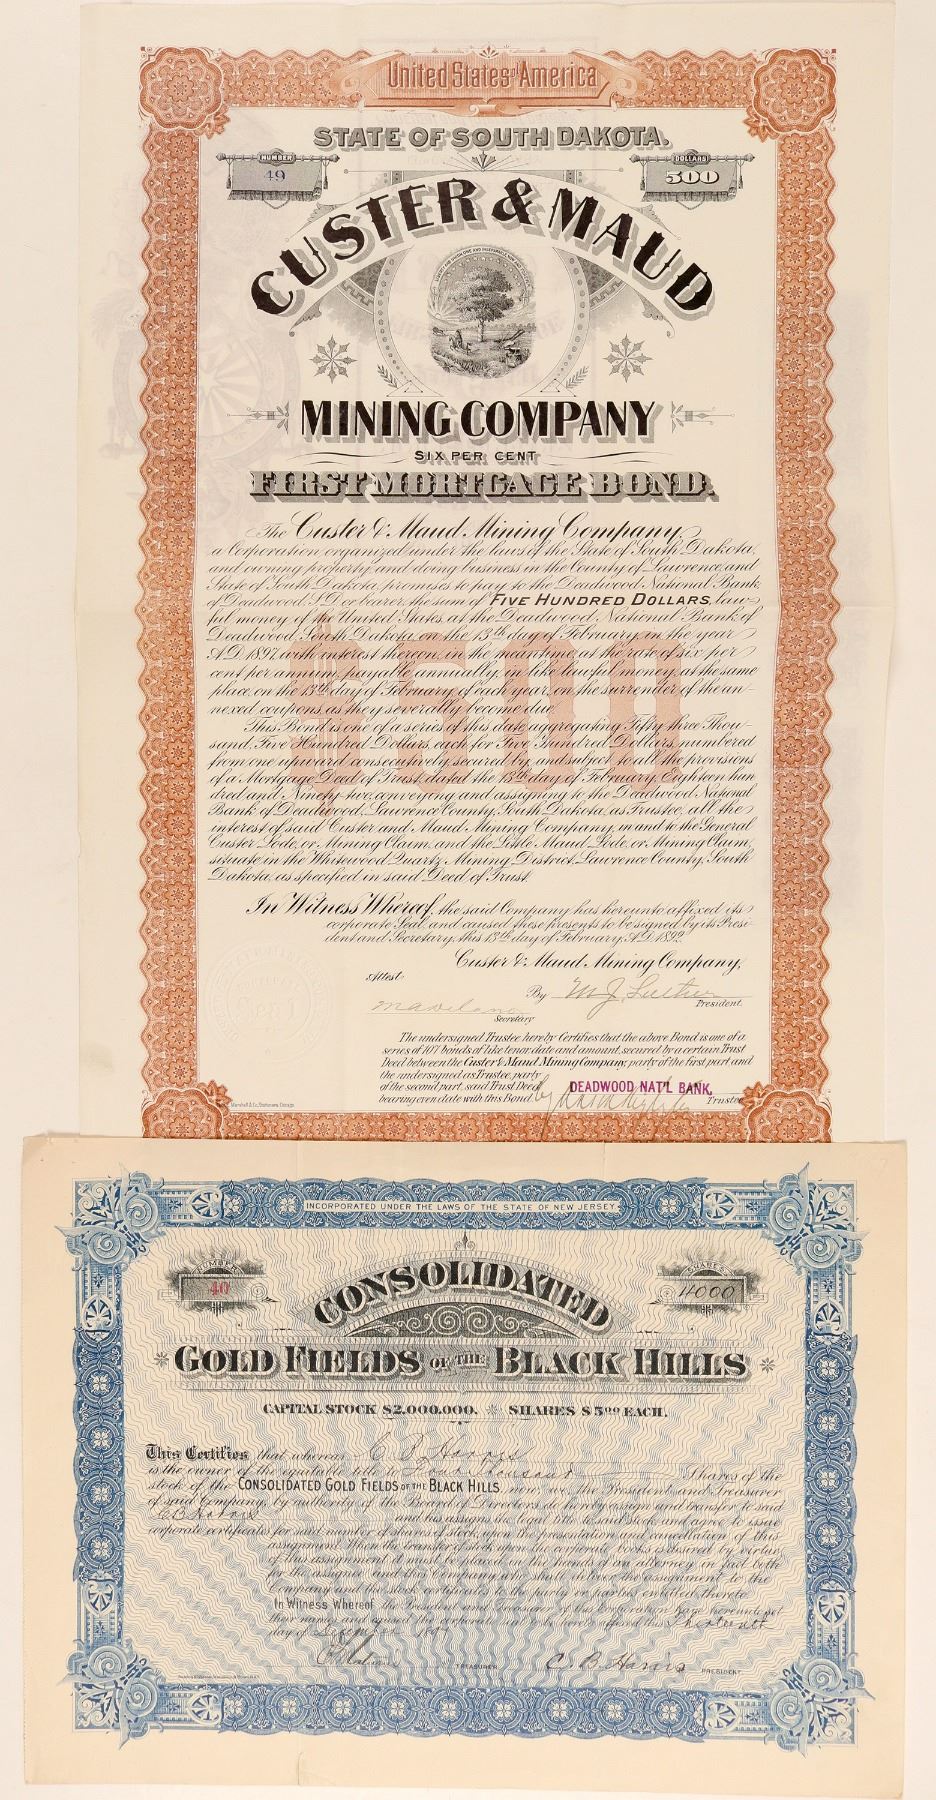 United States of America
STATE OF SOUTH DAKOTA.
NUMBER
49
DOLLARS
500
CUSTER & MAUD
MINING COMPANY
SIX PER CENT
FIRST MORTGAGE BOND.
The Custer & Maud Mining Company,
a Corporation organized under the laws of the State of South Dakota,
and owning property, and doing business in the County of Lawrence, and
State of South Dakota, promises to pay to the Deadwood National Bank
of Deadwood, S.D. or bearer, the sum of FIVE HUNDRED DOLLARS, law-
ful money of the United States, at the Deadwood National Bank of
Deadwood, South Dakota, on the 13th day of February, in the year
A.D. 1897, with interest thereon, in the meantime, at the rate of six per
cent per annum, payable annually, in like lawful money, at the same
place, on the 13th day of February, of each year, on the surrender of the an-
nexed coupons, as they severally become due.
$500
This Bond is one of a series of this date, aggregating Fifty three Thou-
sand, Five Hundred Dollars, each for Five Hundred Dollars, numbered
from one upward consecutively, secured by, and subject to all the provisions
of a Mortgage Deed of Trust, dated the 13th day of February, Eighteen hun
dred and Ninety-two, conveying and assigning to the Deadwood National
Bank of Deadwood, Lawrence County, South Dakota, as Trustee, all the
interest of said Custer and Maud Mining Company, in and to the General
Custer Lode, or Mining Claim, and the Little Maud Lode, or Mining Claim,
situate in the Whitewood Quartz Mining District, Lawrence County, South
Dakota, as specified in said Deed of Trust.
In Witness Whereof, the said Company has hereunto affixed its
corporate Seal, and caused these presents to be signed by its Presi-
dent and Secretary, this 13th day of February, A.D. 1892.
Custer & Maud Mining Company,
Attest
By M J Luther
President.
Secretary
The undersigned Trustee hereby Certifies that the above Bond is one of a
series of 107 bonds of like tenor, date and amount, secured by a certain Trust
Deed between the Custer & Maud Mining Company, party of the first part and
the undersigned as Trustee, party
of the second part, said Trust Deed
DEADWOOD NAT'L BANK,
bearing even date with this Bond. by
Trustee
Marshall & Co., Stationers, Chicago
INCORPORATED UNDER THE LAWS OF THE STATE OF NEW JERSEY.
NUMBER
40
SHARES
4000
CONSOLIDATED
GOLD FIELDS OF THE BLACK HILLS
CAPITAL STOCK $2,000,000. SHARES $5.00 EACH.
This Certifies that whereas C B Harris
is the owner of the equitable title Four thousand Shares of the
stock of the CONSOLIDATED GOLD FIELDS OF THE BLACK HILLS, now we, the President and Treasurer
of said Company, by authority of the Board of Directors, do hereby assign and transfer to said
C B Harris and his assigns the legal title to said stock and agree to issue
corporate certificates for said number of shares of stock, upon the presentation and cancellation of this
assignment. When the transfer of stock upon the corporate books is desired by virtue
of this assignment it must be placed in the hands of an attorney in fact both
for the assignee and this Company who shall deliver the assignment to the
Company and the stock certificates to the party or parties entitled thereto.
In Witness Whereof the President and Treasurer of this Corporation have hereunto set
their names and caused the corporate seal to be hereto affixed this
day of December
TREASURER
C. B. Harris PRESIDENT